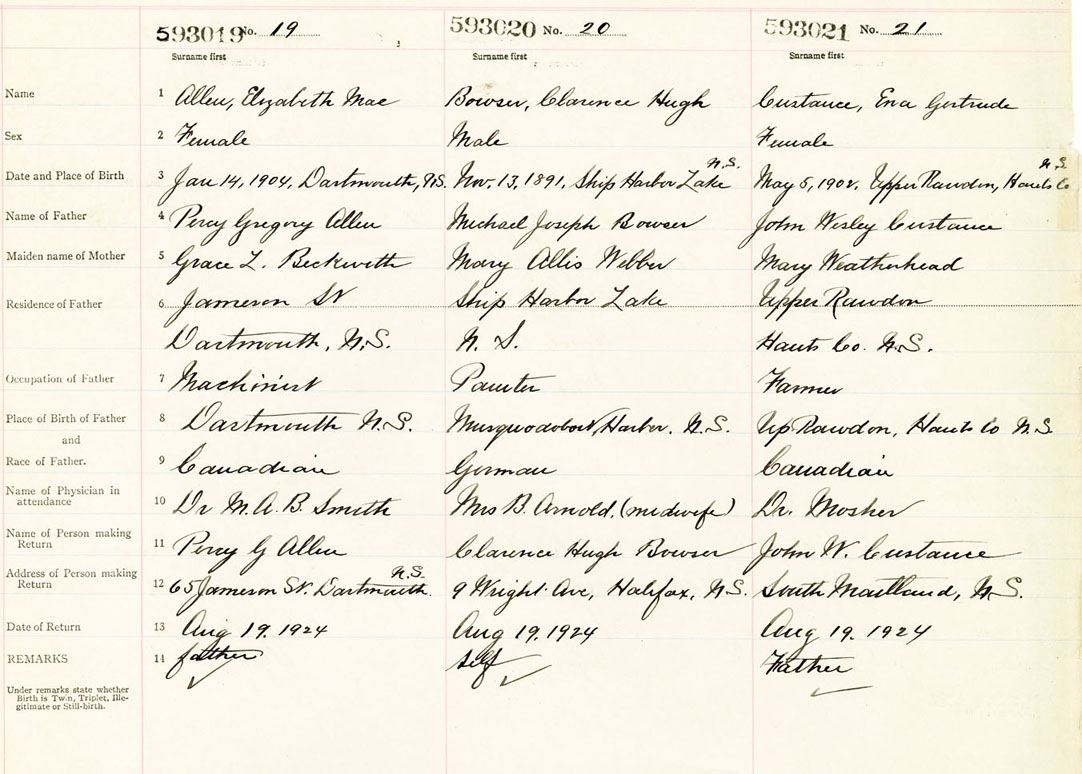 593019 No. 19 593020 No. 20 593021 No. 21
Surname first Surname first Surname first
Name 1 Allen, Elizabeth Mae Bowser, Clarence Hugh Custance, Ena Gertrude
Sex 2 Female Male Female
N.S. N.S.
Date and Place of Birth 3 Jan 14, 1904, Dartmouth, N.S. Nov. 13, 1891, Ship Harbor Lake May 5, 1902, Upper Rawdon, Hants Co
Name of Father 4 Percy Gregory Allen Michael Joseph Bowser John Wesley Custance
Maiden name of Mother 5 Grace L. Beckwith Mary Allis Webber Mary Weatherhead
Residence of Father 6 Jameson St Ship Harbor Lake Upper Rawdon
Dartmouth, N.S. N. S. Hants Co. N.S.
Occupation of Father 7 Machinist Painter Farmer
Place of Birth of Father 8 Dartmouth N.S. Musquodoboit Harbor. N.S. Up Rawdon, Hants Co N.S
and
Race of Father. 9 Canadian German Canadian
Name of Physician in
attendance 10 Dr M.A.B. Smith Mrs B. Arnold, (midwife) Dr. Mosher
Name of Person making
Return 11 Percy G Allen Clarence Hugh Bowser John W. Custance
N.S.
Address of Person making
Return 12 65 Jameson St. Dartmouth. 9 Wright Ave, Halifax, N.S. South Maitland, N.S.
Date of Return 13 Aug 19. 1924 Aug 19. 1924 Aug 19. 1924
REMARKS 14 father self Father
Under remarks state whether
Birth is Twin, Triplet, Ille-
gitimate or Still-birth.